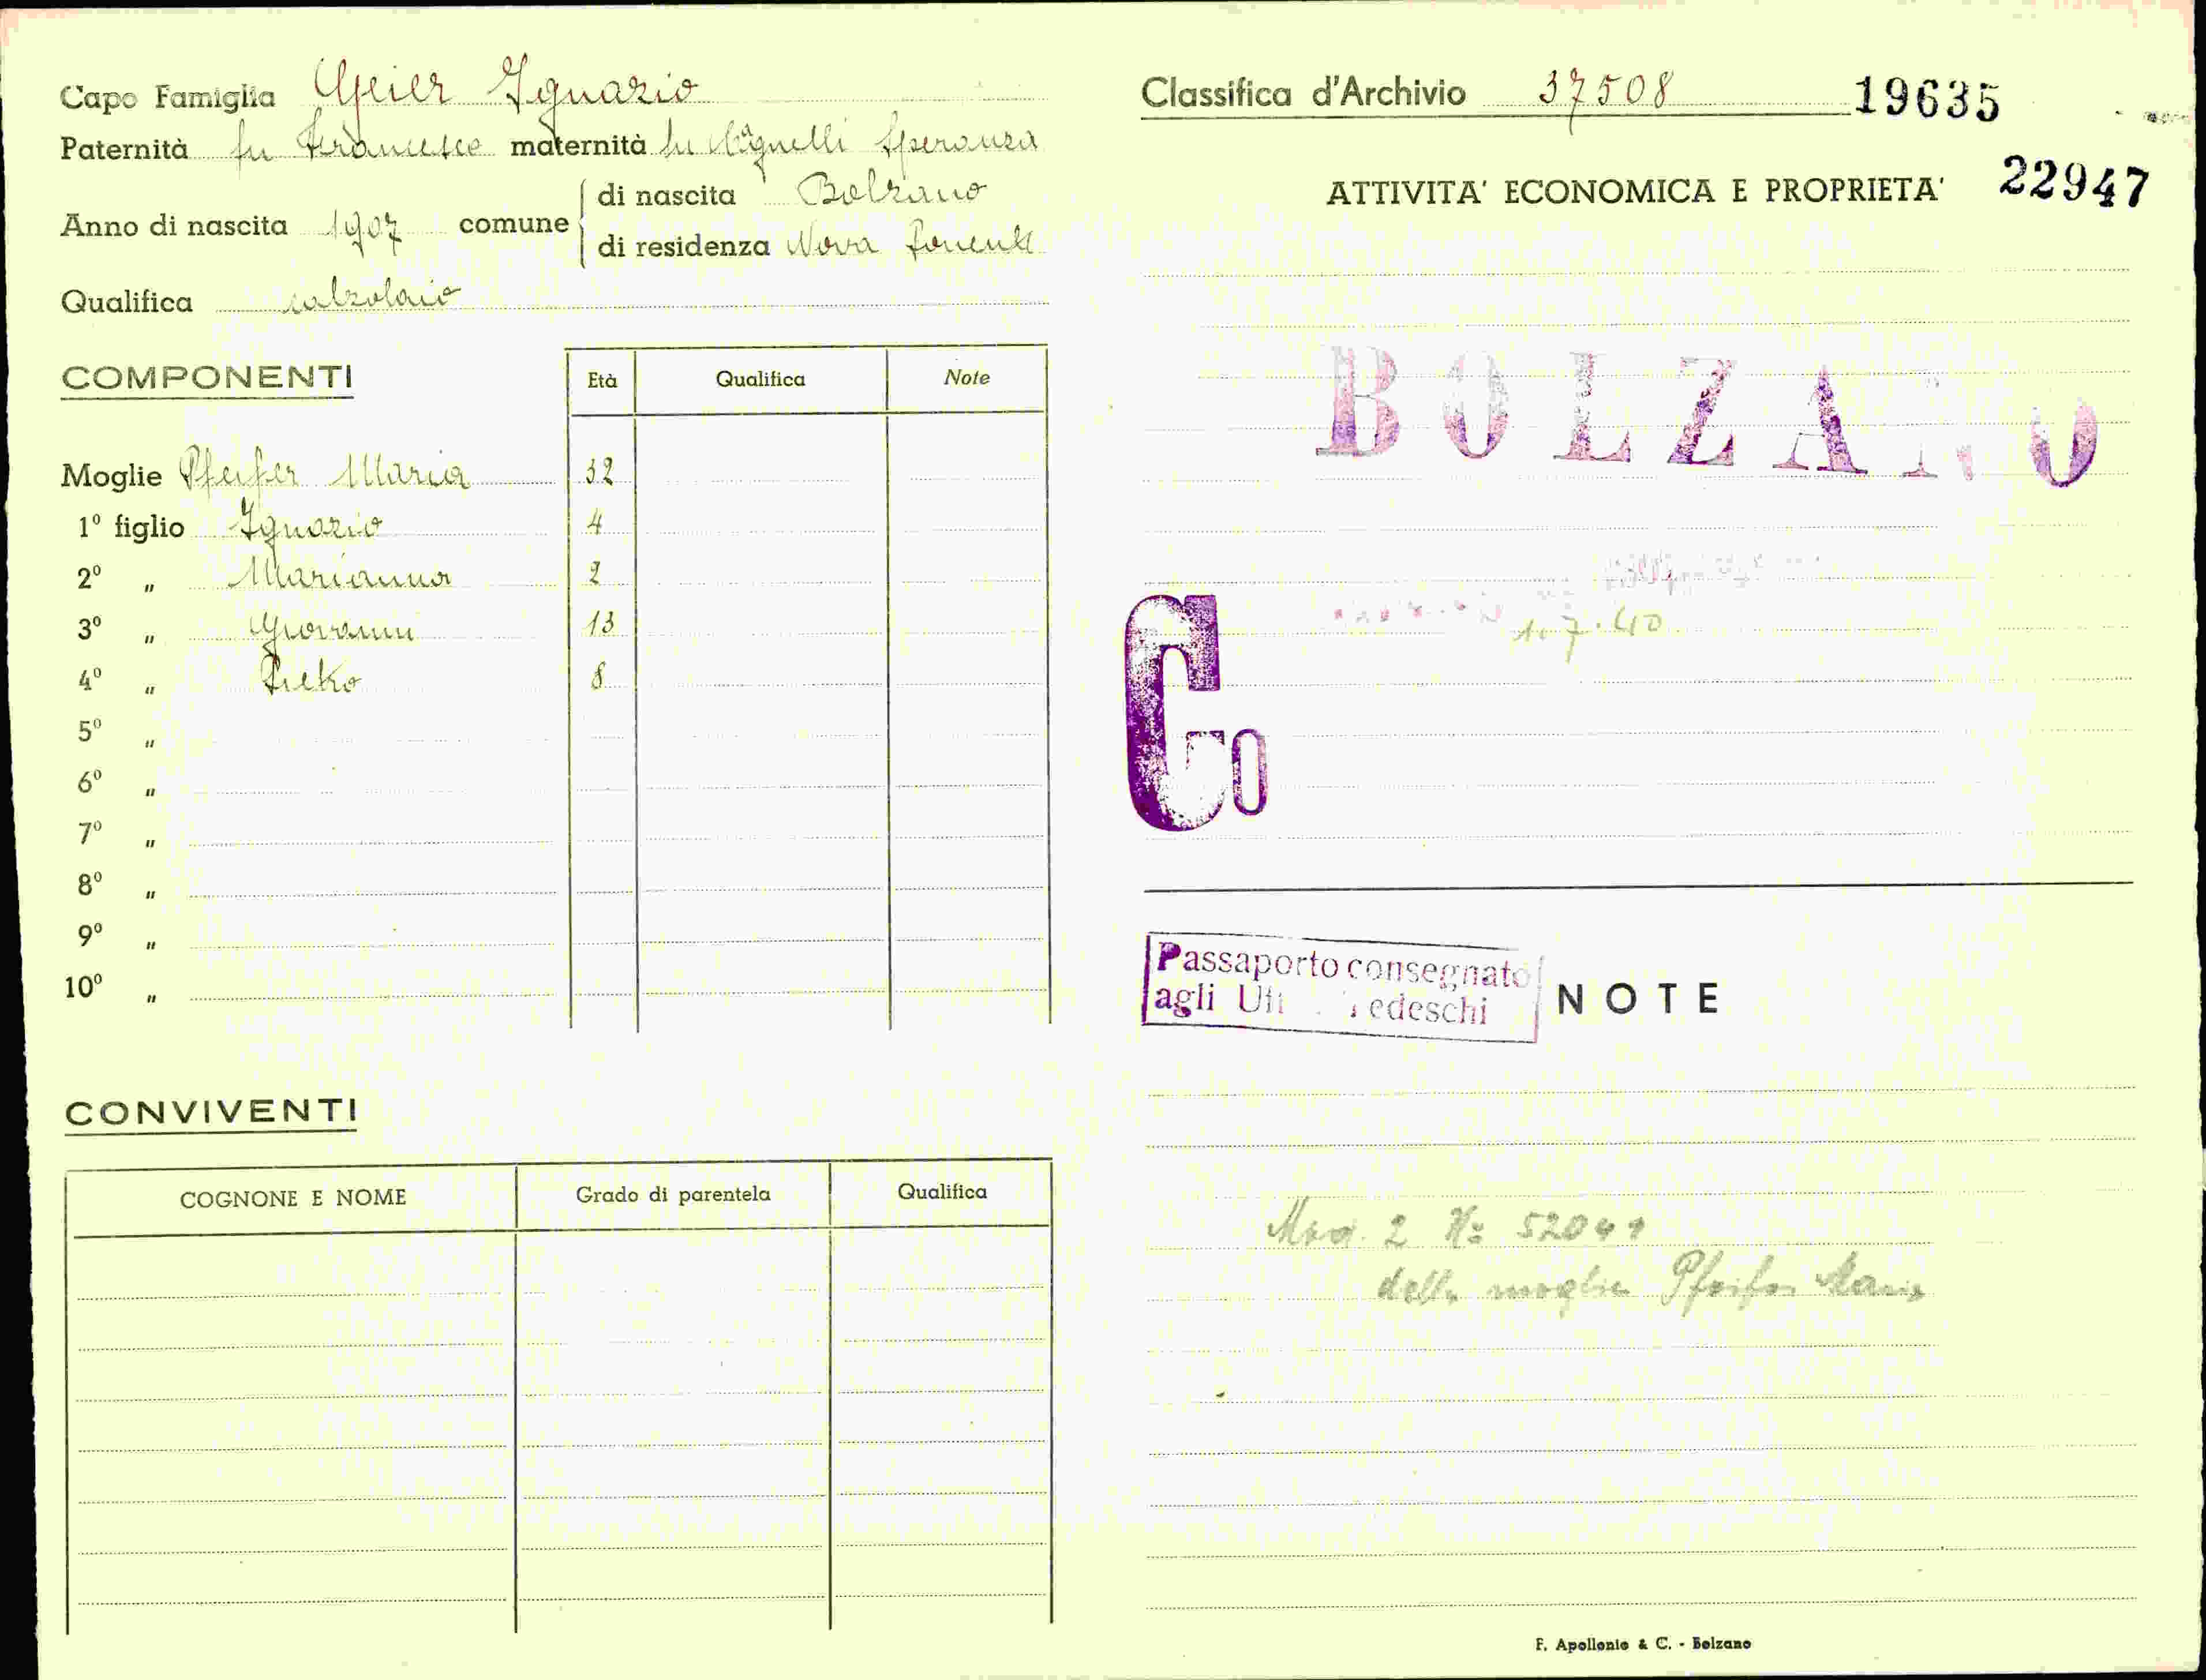 Capo Famiglia Geier Ignazio
Paternità fu Francesco maternità fu Agnelli Speranza
Anno di nascita 1907 comune di nascita Bolzano
di residenza Nova Ponente
Qualifica calzolaio
COMPONENTI Età Qualifica Note
Moglie Pfeifer Maria 32
1° figlio Ignazio 4
2° „ Marianna 2
3° „ Giovanni 13
4° „ 8
5° „
6° „
7° „
8° „
9° „
10° „
CONVIVENTI
COGNONE E NOME Grado di parentela Qualifica
Classifica d'Archivio 37508 19635
ATTIVITA' ECONOMICA E PROPRIETA' 22947
BOLZANO
1.7.40
Co
Passaporto consegnato
agli Tedeschi
NOTE
Mod. 2 N: 52041
della moglie Pfeifer Maria
F. Apollonio & C. - Bolzano